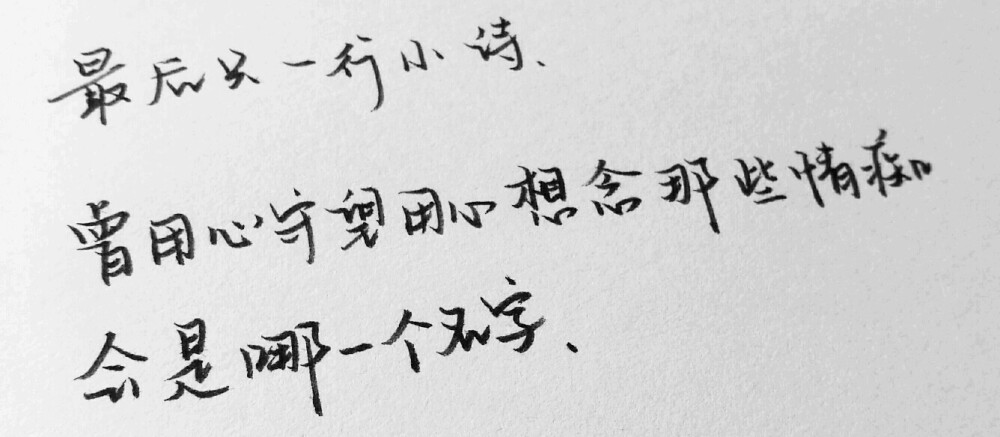 最后只一行小诗、
曾用心守望用心想念那些情痴
会是哪一个名字、